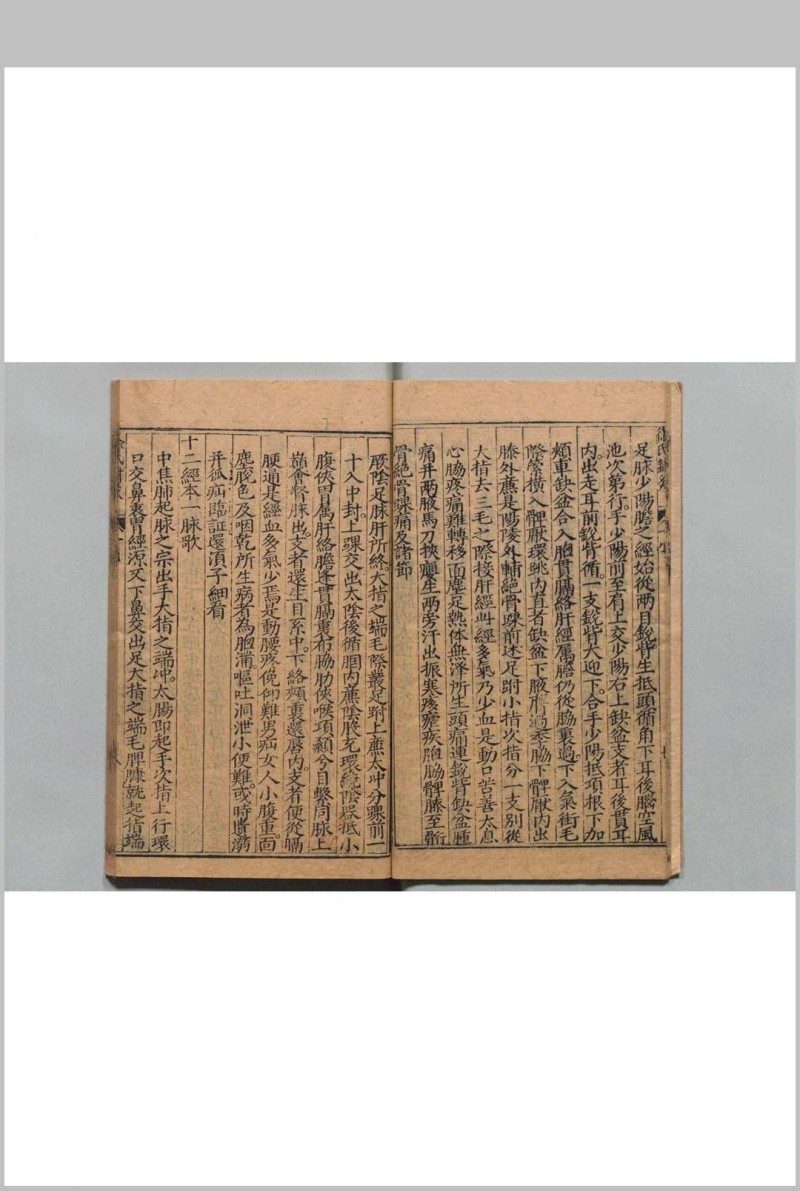 足脉少陽膽之經始從兩目銳眥生抵頭循角下耳後腦空風
池次第行手少陽前至肩上交少陽右上缺盆支者耳後貫耳
內出走耳前銳眥循一支銳眥大迎下合手少陽抵項根下加
頰車缺盆合入胸貫膈絡肝經屬膽仍從脇裏過下入氣街毛
際縈橫入髀厭環跳內直者缺盆下腋胸過季脇下髀厭內出
膝外廉是陽陵外輔絕骨踝前述足跗小指次指分一支別從
大指去三毛之際接肝經此經多氣乃少血是動口苦善太息
心脇疼痛難轉移面塵足熱体無澤所生頭痛連銳眥缺盆腫
痛并兩腋馬刀挾癭生兩旁汗出振寒痎瘧疾胸脇髀膝至䯒
骨絕骨踝痛及諸節
厥陰足脉肝所終大指之端毛際叢足跗上廉太冲分踝前一
寸入中封上踝交出太陰後循膕內廉陰股充環繞陰器抵小
腹俠胃屬肝絡膽逢貫膈裏布脇肋俠喉項顙兮目繫同脉上
巔會督脉出支者還生目系中下絡頰裏還唇內支者便從膈
腰通是經血多氣少焉是動腰疼俛仰難男疝女人小腹重面
塵脫色及咽乾所生病者為胸滿嘔吐洞泄小便難或時遺溺
并狐疝臨証還須子細看
十二經本一脉歌
中焦肺起脉之宗出手大指之端冲太腸即起手次指上行環
口交鼻裏胃經源又下鼻交出足大指之端毛脾脉就起指端